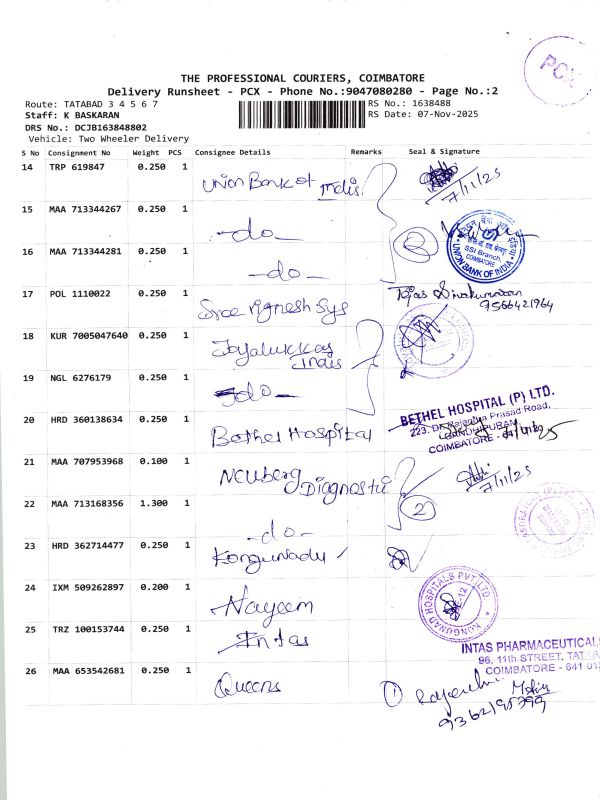 PCX
THE PROFESSIONAL COURIERS, COIMBATORE
Delivery Runsheet - PCX - Phone No.:9047080280 - Page No.:2
Route: TATABAD 3 4 5 6 7
RS No.: 1638488
Staff: K BASKARAN
RS Date: 07-Nov-2025
DRS No.: DCJB163848802
Vehicle: Two Wheeler Delivery
S No Consignment No Weight PCS Consignee Details Remarks Seal & Signature
14 TRP 619847 0.250 1 Union Bank of India
7/11/25
15 MAA 713344267 0.250 1 -do-
UNION BANK OF INDIA
SSI Branch,
COIMBATORE
16 MAA 713344281 0.250 1 -do-
17 POL 1110022 0.250 1 Sree Vignesh Sys
Tejas Sivakumaran
9566421964
18 KUR 7005047640 0.250 1 Joyalukkas
India
19 NGL 6276179 0.250 1 -do-
20 HRD 360138634 0.250 1 Bethel Hospital
BETHEL HOSPITAL (P) LTD.
223, Dr. Rajendra Prasad Road,
GANDHIPURAM,
COIMBATORE - 641 012
21 MAA 707953968 0.100 1 Neuberg Diagnostic
7/11/25
22 MAA 713168356 1.300 1 -do-
2
23 HRD 362714477 0.250 1 Kongunadu
24 IXM 509262897 0.200 1 Nayeem
KONGUNAD HOSPITALS PVT LTD
25 TRZ 100153744 0.250 1 Intas
INTAS PHARMACEUTICAL
96, 11th STREET, TATA
COIMBATORE - 641 01
26 MAA 653542681 0.250 1 Queens
1